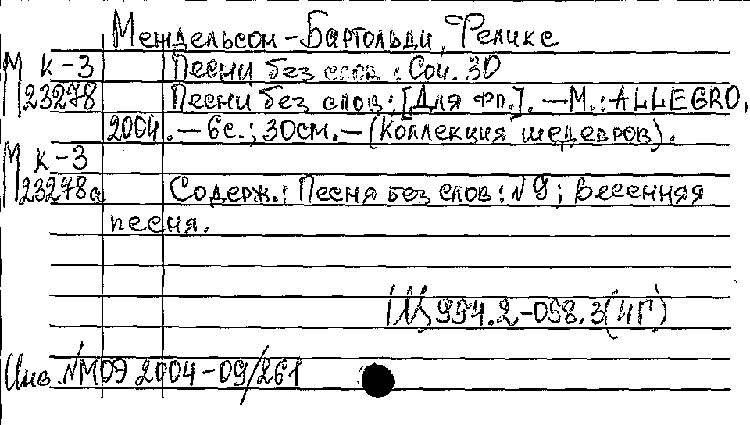 Мендельсон-Бартольди, Феликс
М К-3 Песни без слов: Соч. 30
23278 Песни без слов: [Для фп.]. — М.: ALLEGRO,
2004. — 6с.; 30см. — (Коллекция шедевров).
М К-3
23278а Содерж.: Песня без слов: №9; Весенняя
песня.
Щ 954.2-058.3(4Г)
Инв. №МОЭ 2004-09/261